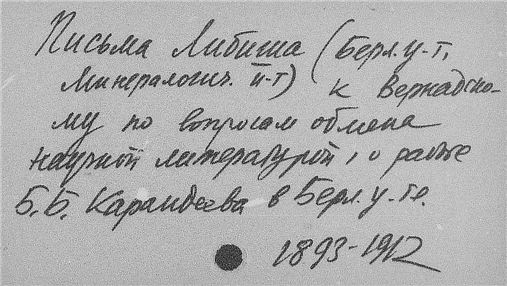 Письма Либиша (Берл. у-т,
Минералогич. и-т) к Вернадско-
му по вопросам обмена
научной литературой, о работе
Б.Б. Карандеева в Берл. у-те.
1893-1912